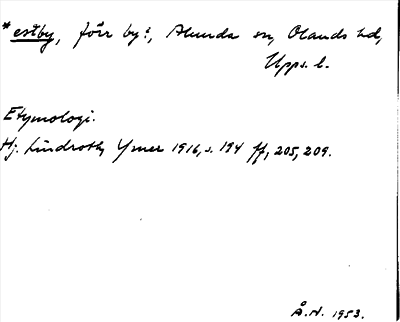 * estby, förr by?, Alunda sn, Olands hd,
Upps. l.
Etymologi.
Hj. Lindroth, Ymer 1916, s. 194 ff, 205, 209.
Å.N. 1953.